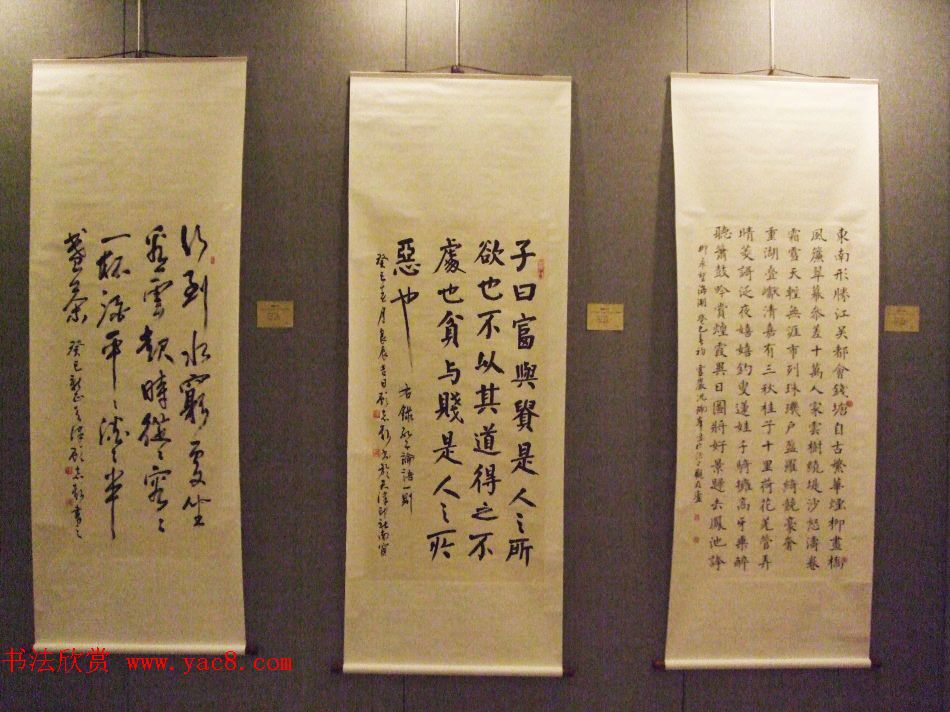 行到水窮處坐
看雲起時從々容々
一杯酒平々淡々半
盞茶
癸巳 天津顧志新書之
子曰富與貴是人之所
欲也不以其道得之不
處也貧与賤是人之所
惡也
右錄論語一則
癸巳 月良辰吉日顧志新 於天津印社南窗
東南形勝江吳都會錢塘自古繁華煙柳畫橋
風簾翠幕參差十萬人家雲樹繞堤沙怒濤卷
霜雪天塹無涯市列珠璣戶盈羅綺競豪奢
重湖疊巘清嘉有三秋桂子十里荷花羌管弄
晴菱謌泛夜嬉嬉釣叟蓮娃千騎擁高牙乘醉
聽簫鼓吟賞煙霞異日圖將好景歸去鳳池誇
柳永望海潮癸巳
书法欣赏 www.yac8.com